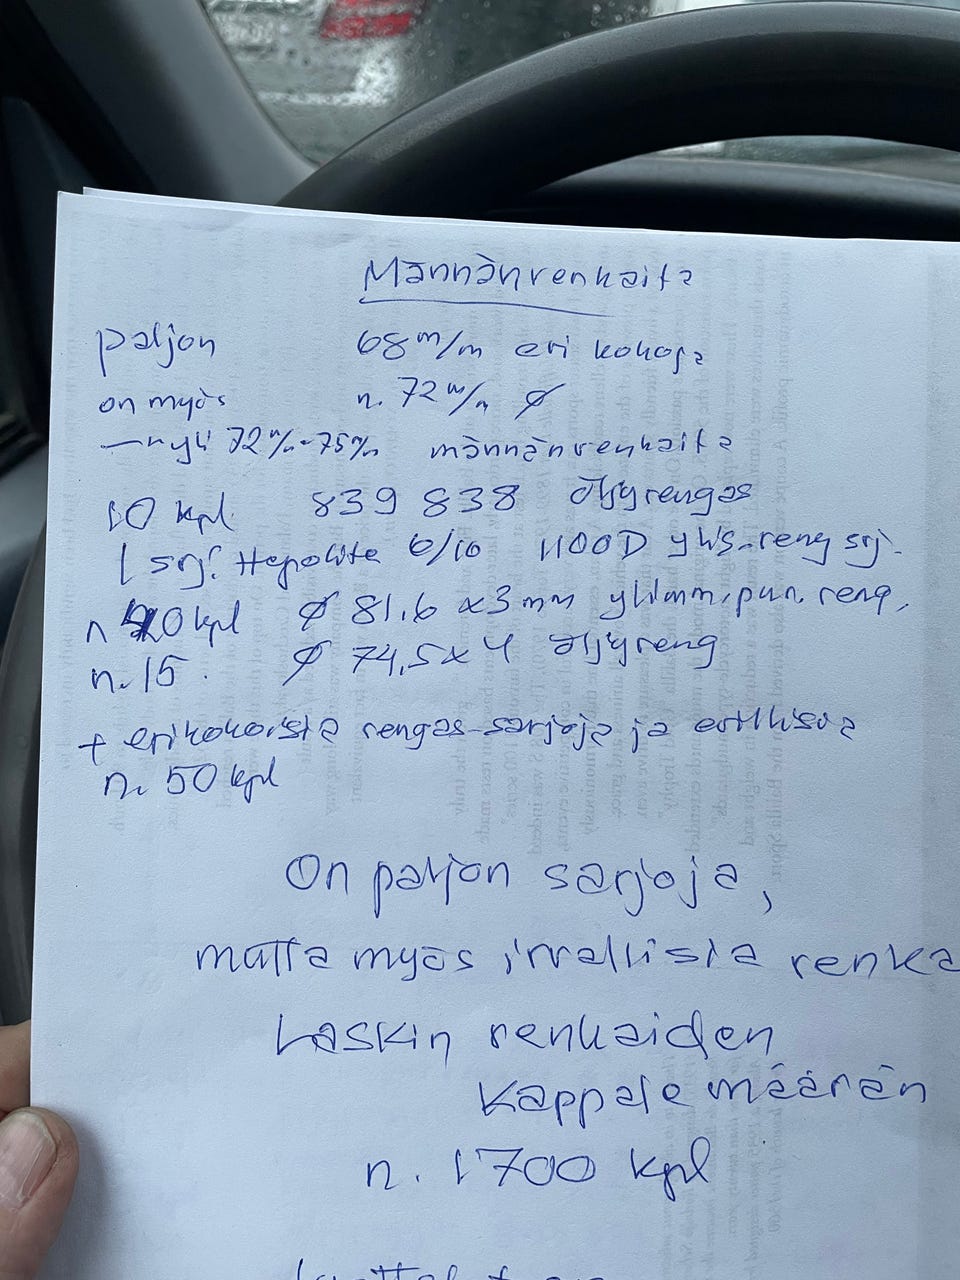 Männänrenkaita
paljon 68 m/m eri kokoja
on myös n. 72 m/m ⌀
72 m/m - 75 m/m männänrenkaita
10 kpl 839 838 öljyrengas
1 srj. Hepolite 6/10 1100D ylis.reng srj.
n 20 kpl ⌀ 81,6 x 3 mm ylimm. pun. reng.
n. 15. ⌀ 74,5 x 4 öljyreng
+ erikokoisia rengas-sarjoja ja erillisiä
n. 50 kpl
On paljon sarjoja,
mutta myös irrallisia renka
Laskin renkaiden
kappale määrän
n. 1700 kpl